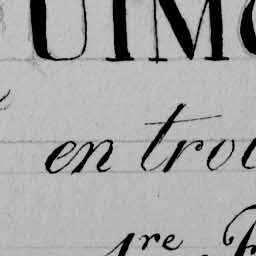 UIM
en tro
1re